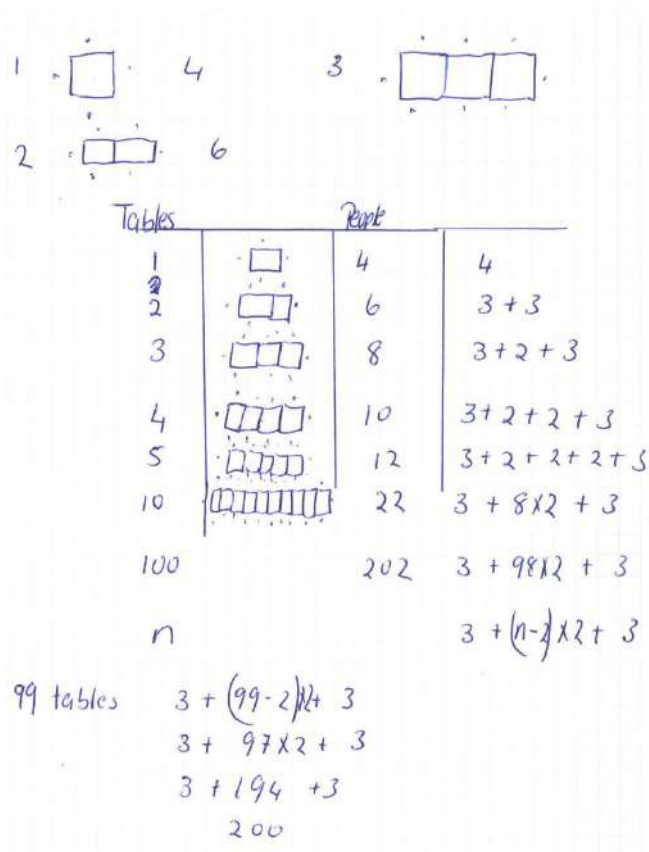 1 4 3
2 6
Tables People
1 4 4
2 6 3 + 3
3 8 3 + 2 + 3
4 10 3 + 2 + 2 + 3
5 12 3 + 2 + 2 + 2 + 3
10 22 3 + 8X2 + 3
100 202 3 + 98X2 + 3
n 3 + (n-2)X2 + 3
99 tables 3 + (99-2)X2+ 3
3 + 97X2 + 3
3 + 194 +3
200